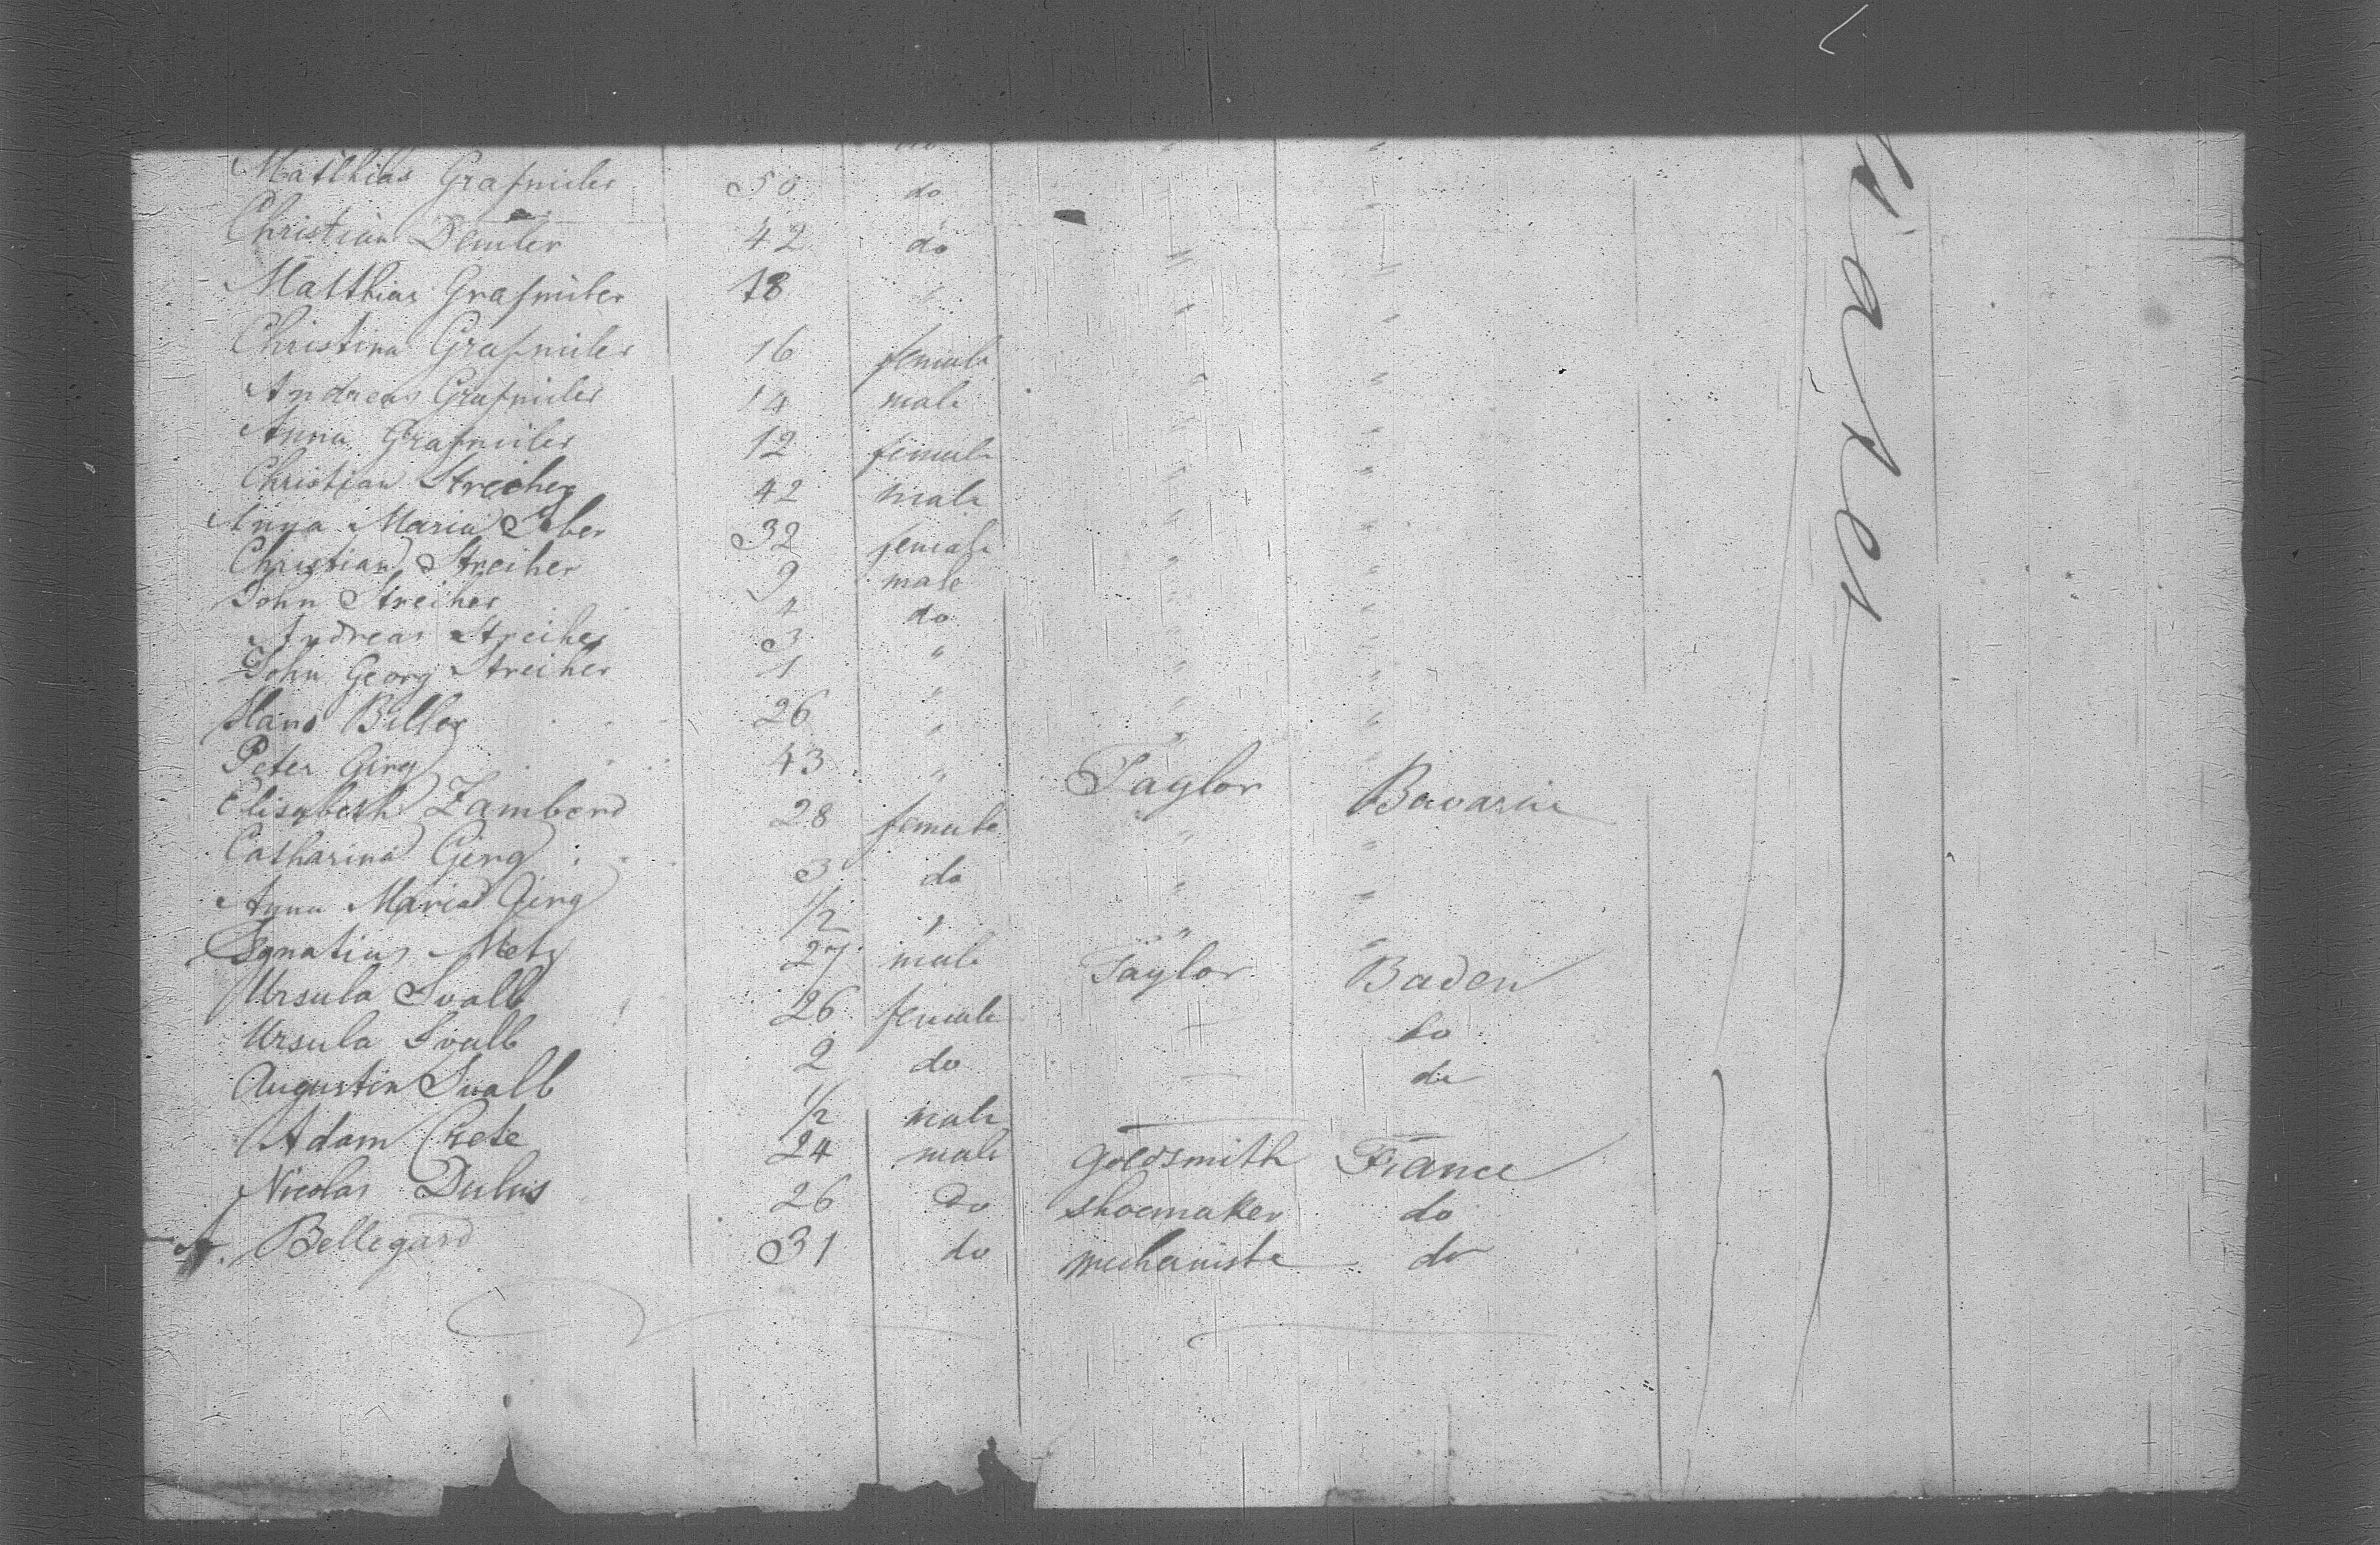 Matthias Grafmiler 50 do " "
Christian Demler 42 do " "
Matthias Grafmiler 18 " " "
Christina Grafmiler 16 female " "
Andreas Grafmiler 14 male " "
Anna Grafmiler 12 female " "
Christian Streiher 42 male " "
Anna Maria Eber 32 female " "
Christian Streiher 9 male " "
John Streiher 4 do " "
Andreas Streiher 3 " " "
John Georg Streiher 1 " " "
Hans Biller 26 " " "
Peter Girg 43 " Taylor Bavaria
Elisabeth Lambert 28 female " "
Catharina Girg 3 do " "
Anna Maria Girg 1/2 " " "
Ignatius Metz 27 male Taylor Baden
Ursula Svalb 26 female do
Ursula Svalb 2 do do
Augustin Svalb 1/2 male
Adam Crete 24 male goldsmith France
Nicolas Dulus 26 do shoemaker do
Bellegard 31 do mechaniste do